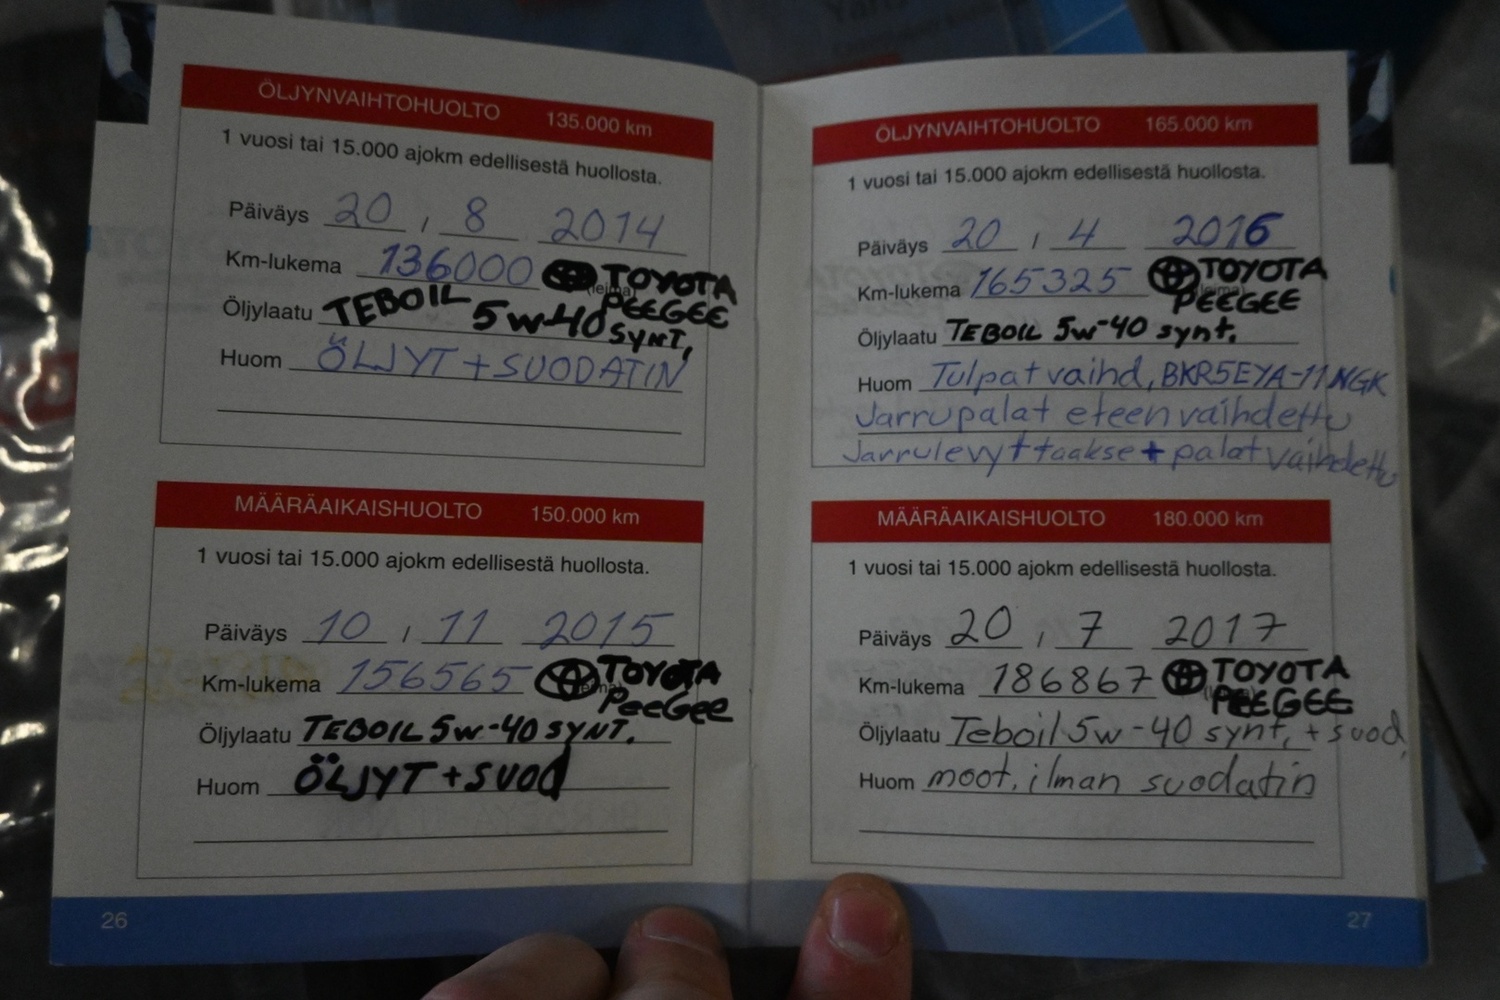 ÖLJYNVAIHTOHUOLTO 135.000 km
1 vuosi tai 15.000 ajokm edellisestä huollosta.
Päiväys 20 / 8 2014
Km-lukema 136000 TOYOTA
(leima) PEEGEE
Öljylaatu TEBOIL 5w-40 SYNT,
Huom ÖLJYT + SUODATIN
MÄÄRÄAIKAISHUOLTO 150.000 km
1 vuosi tai 15.000 ajokm edellisestä huollosta.
Päiväys 10 / 11 2015
Km-lukema 156565 TOYOTA
(leima) PEEGEE
Öljylaatu TEBOIL 5w-40 SYNT.
Huom ÖLJYT + SUOD
26
ÖLJYNVAIHTOHUOLTO 165.000 km
1 vuosi tai 15.000 ajokm edellisestä huollosta.
Päiväys 20 / 4 2016
Km-lukema 165325 TOYOTA
(leima) PEEGEE
Öljylaatu TEBOIL 5w-40 synt.
Huom Tulpat vaihd, BKR5EYA-11 NGK
Jarrupalat eteen vaihdettu
Jarrulevyt taakse + palat vaihdettu
MÄÄRÄAIKAISHUOLTO 180.000 km
1 vuosi tai 15.000 ajokm edellisestä huollosta.
Päiväys 20 / 7 2017
Km-lukema 186867 TOYOTA
(leima) PEEGEE
Öljylaatu Teboil 5w-40 synt, + suod,
Huom moot. ilman suodatin
27